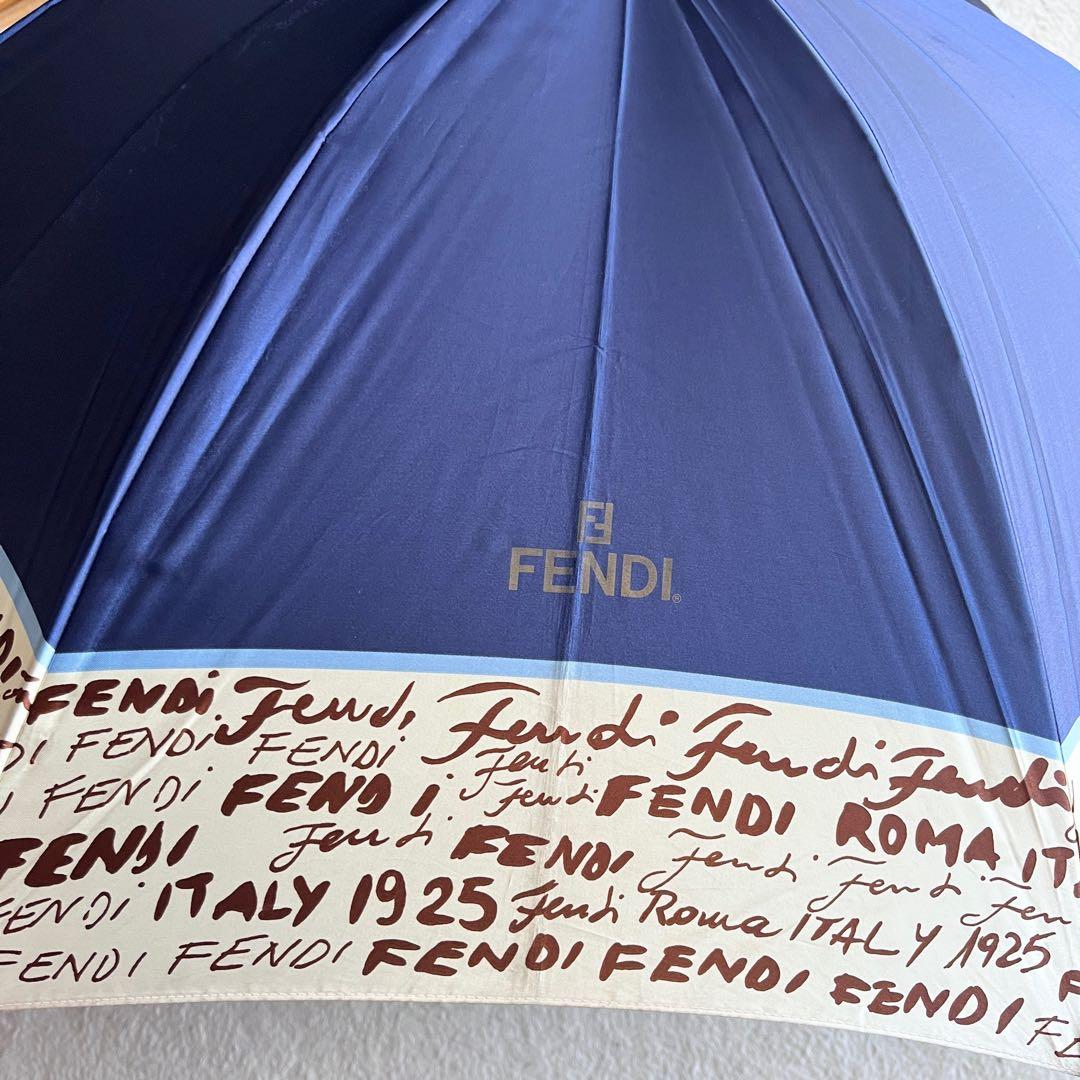 FF
FENDI®
FENDi Fendi Fendi Fendi Fendi
DI FENDi FENDi Fendi
FENDi FENDi Fendi FENDI ROMA
FENDI Fendi FENDI Fendi Fendi Fen
FENDi ITALY 1925 Fendi Roma ITALY 1925
FENDI FENDI FENDI FENDI FENDI